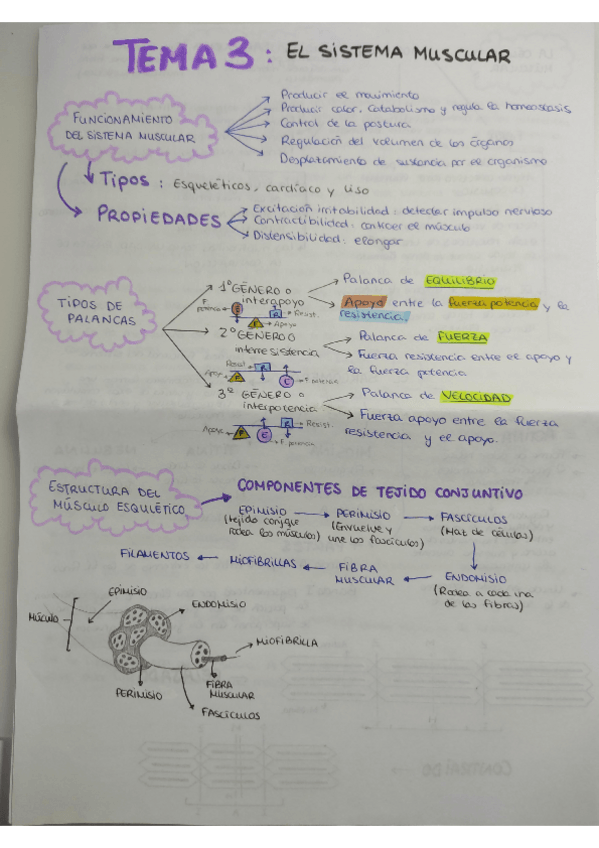 TEMA 3: EL SISTEMA MUSCULAR
FUNCIONAMIENTO
DEL SISTEMA MUSCULAR
Producir el movimiento
Producir calor. Catabolismo y regula la homeostasis
Control de la postura
Regulación del volumen de los órganos
Desplazamiento de sustancia por el organismo
TIPOS: Esqueléticos, cardíaco y liso
PROPIEDADES
Excitación irritabilidad: detectar impulso nervioso
Contractibilidad: contraer el músculo
Distensibilidad: elongar
TIPOS DE
PALANCAS
1º GÉNERO o
interapoyo
Palanca de EQUILIBRIO
Apoyo entre la fuerza potencia y la
resistencia.
F
potencia
E
R
Resist.
F
Apoyo
2º GÉNERO o
interresistencia
Palanca de FUERZA
Fuerza resistencia entre el apoyo y
la fuerza potencia
R
Apoyo
F
F potencia
3º GÉNERO o
interpotencia
Palanca de VELOCIDAD
Fuerza apoyo entre la fuerza
resistencia y el apoyo.
R
Resist.
Apoyo
F
E
F potencia
ESTRUCTURA DEL
MÚSCULO ESQULÉTICO
COMPONENTES DE TEJIDO CONJUNTIVO
EPIMISIO
(tejido conj que
rodea los músculos)
PERIMISIO
(Envuelve y
une los fascículos)
FASCÍCULOS
(Haz de células)
FILAMENTOS
MIOFIBRILLAS
FIBRA
MUSCULAR
ENDOMISIO
(Rodea a cada una
de las fibras)
EPIMISIO
ENDOMISIO
MÚCULO
MIOFIBRILLA
PERIMISIO
FIBRA
MUSCULAR
FASCÍCULOS